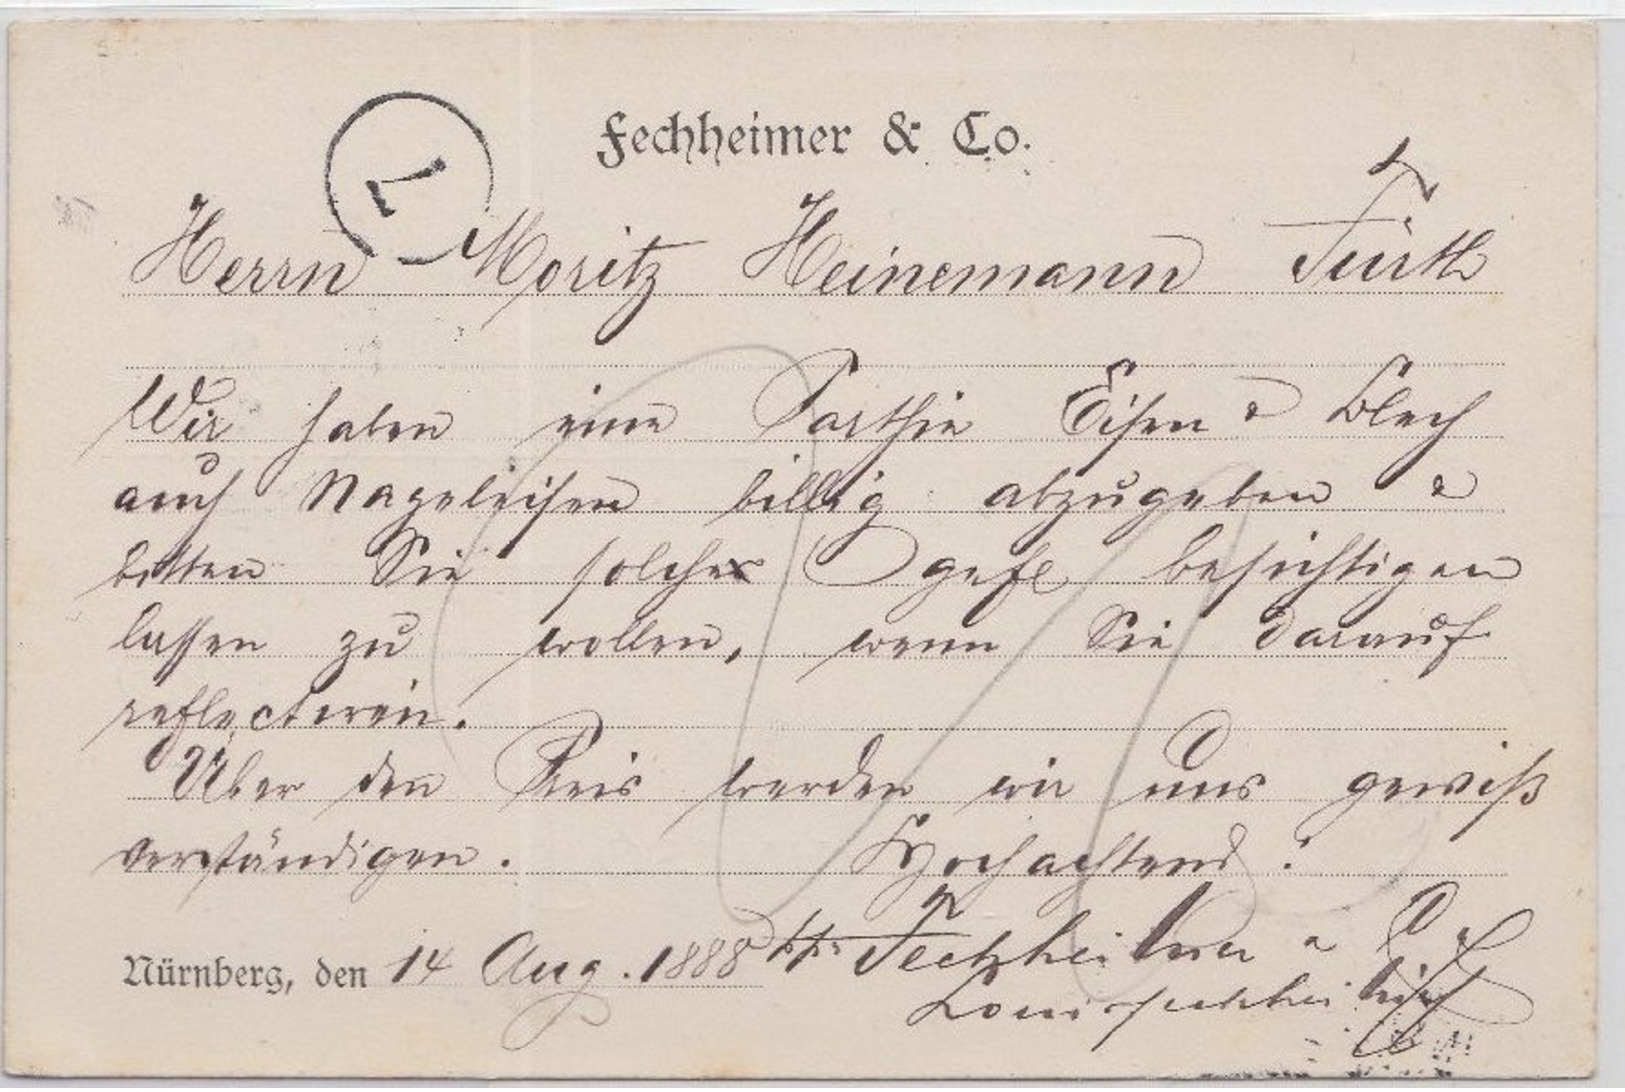 Fechheimer & Co.
Herrn Moritz Heinemann Fürth
Wir haben eine Parthie Eisen & Blech
auch Nageleisen billig abzugeben &
bitten Sie solche gefl besichtigen
lassen zu wollen, wenn Sie darauf
reflectieren.
Über den Preis werden wir uns gewiß
verständigen. Hochachtend:
Nürnberg, den 14 Aug. 1888 pp. Fechheimer & Co
Louis Fechheimer